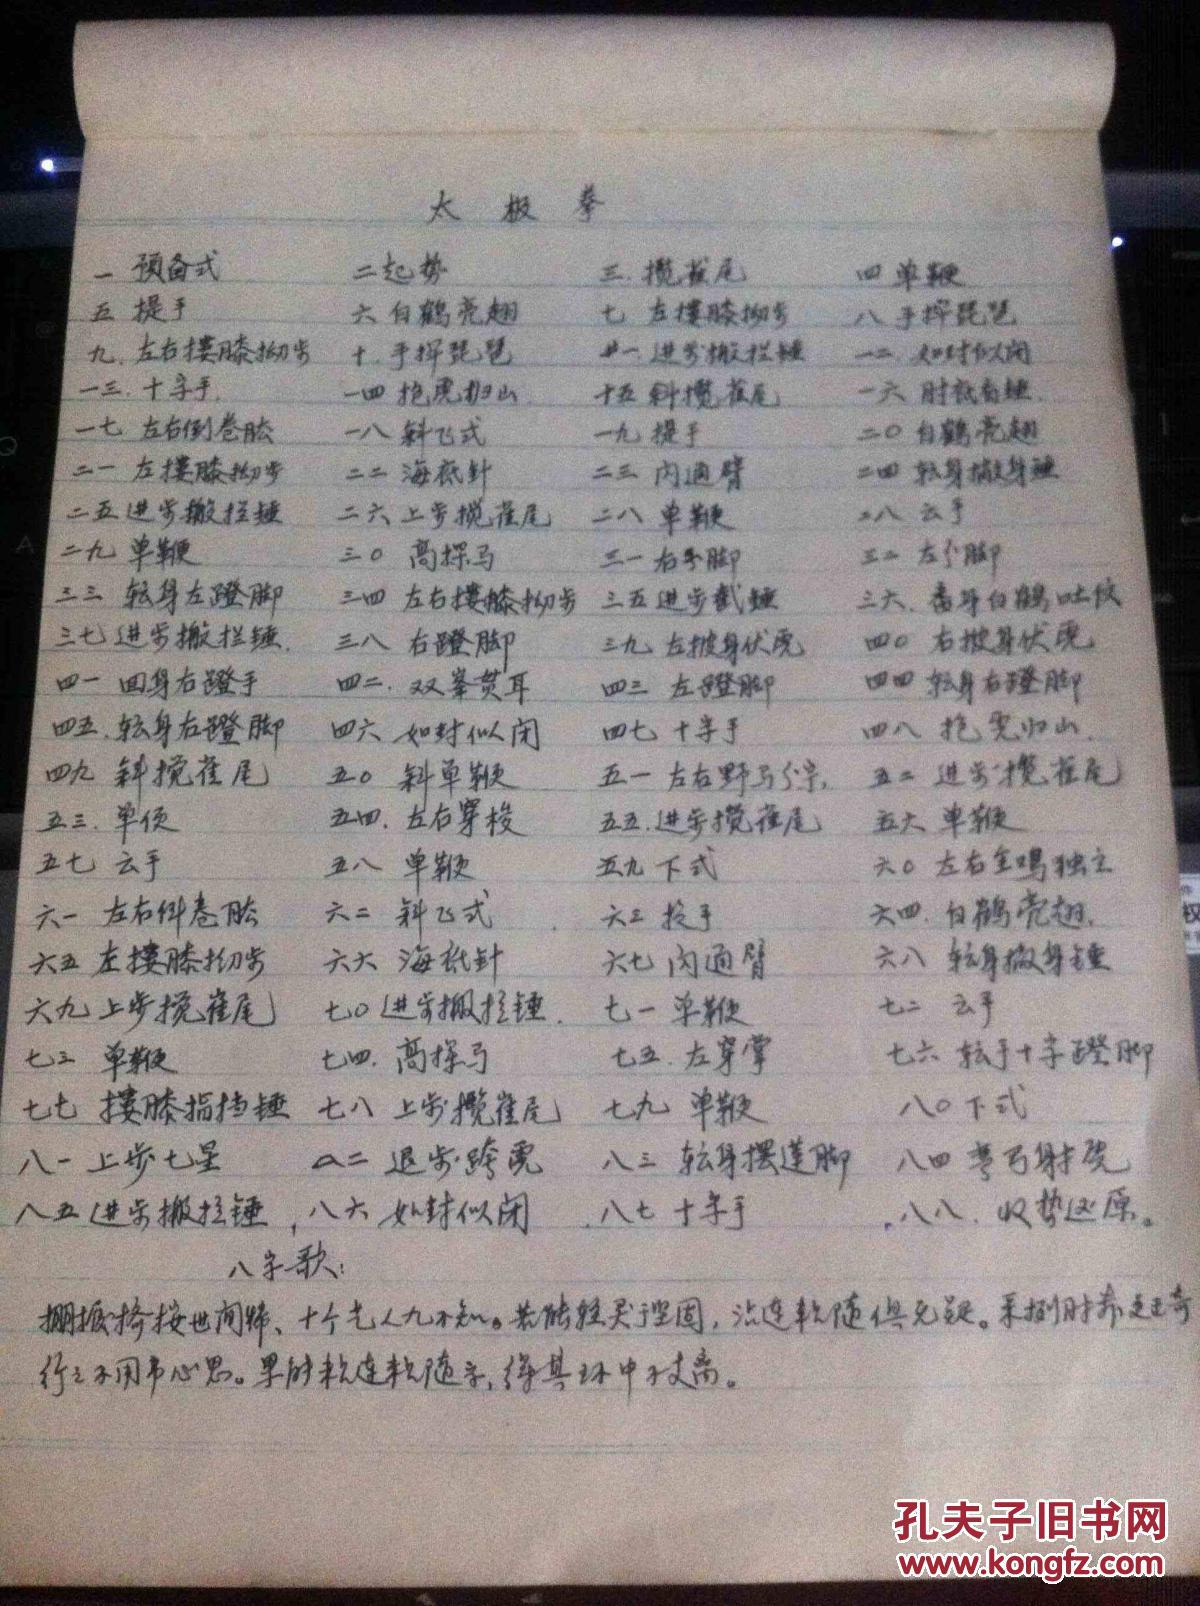 太极拳
一 预备式 二 起势 三. 揽雀尾 四 单鞭
五 提手 六 白鹤亮翅 七 左搂膝拗步 八 手挥琵琶
九. 左右搂膝拗步 十. 手挥琵琶 十一. 进步搬拦锤 一二. 如封似闭
一三. 十字手. 一四 抱虎归山. 十五 斜揽雀尾 一六 肘祗看锤.
一七 左右倒卷肱 一八 斜飞式 一九 提手 二〇 白鹤亮翅
二一 左搂膝拗步 二二 海祗针 二三 内通臂 二四 转身撇身锤
二五 进步搬拦锤 二六 上步揽雀尾 二八 单鞭 二八 云手
二九 单鞭 三〇 高探马 三一 右分脚 三二 左分脚
三三 转身左蹬脚 三四 左右搂膝拗步 三五 进步截锤 三六. 番身白鹤吐
三七 进步搬拦锤. 三八 右蹬脚 三九 左披身伏虎 四〇 右披身伏虎
四一 回身右蹬手 四二. 双峯贯耳 四三 左蹬脚 四四 转身右蹬脚
四五. 转身右蹬脚 四六 如封似闭 四七 十字手 四八 抱虎归山.
四九 斜揽雀尾 五〇 斜单鞭 五一 左右野马分宗. 五二 进步揽雀尾
五三. 单便 五四. 左右穿梭 五五. 进步揽雀尾 五六 单鞭
五七 云手 五八 单鞭 五九 下式 六〇 左右金鸣独立
六一 左右倒卷肱 六二 斜飞式 六三 提手 六四. 白鹤亮翅.
六五 左搂膝拗步 六六 海祗针 六七 内通臂 六八 转身撇身锤
六九 上步揽雀尾 七〇 进步搬拦锤. 七一 单鞭 七二 云手
七三 单鞭 七四. 高探马 七五. 左穿掌 七六 转手十字蹬脚
七七 搂膝指挡锤 七八 上步揽雀尾 七九 单鞭 八〇 下式
八一 上步七星 八二 退步跨虎 八三 转身摆莲脚 八四 弯弓射虎
八五 进步搬拦锤, 八六 如封似闭 八七 十字手 八八. 收势还原。
八字歌:
掤捋挤按世间稀、十个艺人九不知。若能轻灵坚固, 沾连软随俱无疑。采挒肘靠更出奇
行之不用市心思。果能软连软随字, 得其环中不支离。
孔夫子旧书网
www.kongfz.com